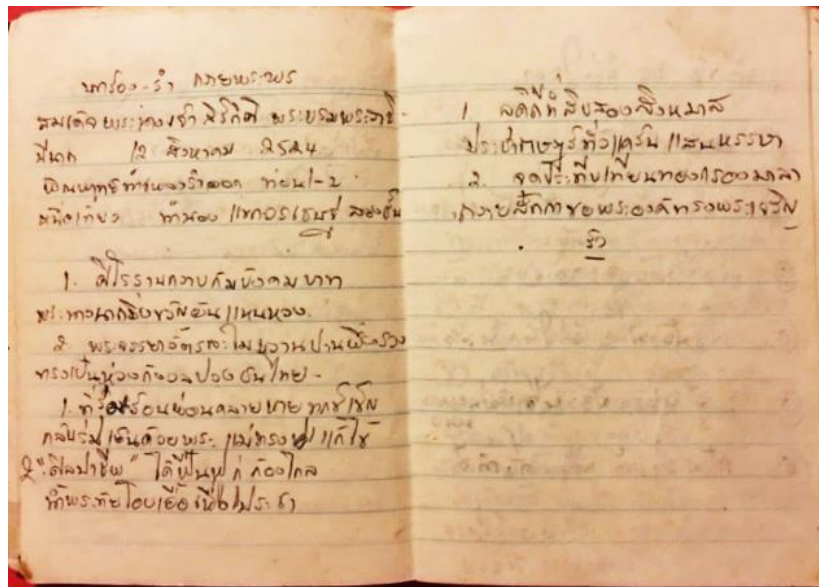 บทร้อง-รำ ถวายพระพร
สมเด็จพระนางเจ้าสิริกิติ์ พระบรมราชินี
มีนาถ 12 สิงหาคม 2524
ท่อน 1-2
เที่ยว ทำนอง แขกอะเซหนู สองชั้น
1. ศิโรราบกราบก้มบังคมบาท
พระ มิ่งขวัญอันแหนหวง
2. พระจรรยาอัตละไมหวานปานผึ้งรวง
ทรงเป็นห่วงก้องปวงชนไทย
1. ที่รุ่มร้อนผ่อนคลายหายทุกข์เข็ญ
กลับร่มเย็นด้วยพระแม่ทรงแก้ไข
2 "ศิลปาชีพ" ได้ฟื้นฟูก่ก้องไกล
น้ำพระทัยโอบเอื้อ ประชา
1. ดิถีที่สิบสองสิงหมาส
ประชา ทั่วแคว้นแสนหรรษา
2. จุดประทีปเทียนทองกรองมาลา
ถวายสักกาขอพระองค์ทรงพระเจริญ
รัว